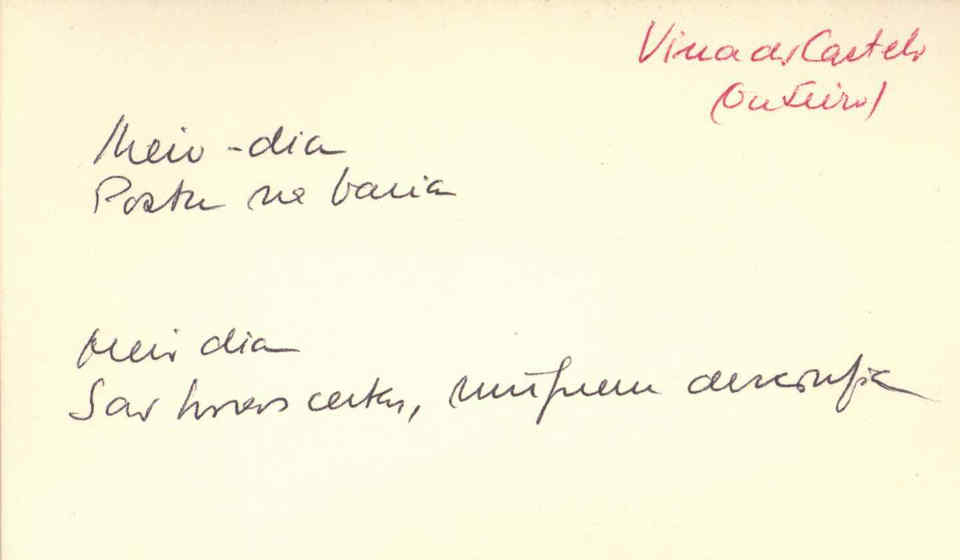 Viana do Castelo
(Outeiro)
Meio-dia
Posto na bacia
Meio dia
São horas certas, ninguem desconfia